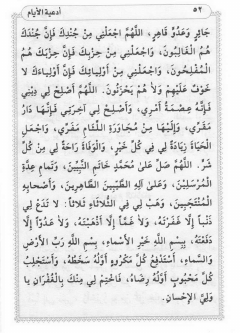 ٥٢ أدعية الأيام
جَائِرٍ وَعَدُوٍّ قَاهِرٍ، اللَّهُمَّ اجْعَلْنِي مِنْ جُنْدِكَ فَإِنَّ جُنْدَكَ
هُمُ الْغَالِبُونَ، وَاجْعَلْنِي مِنْ حِزْبِكَ فَإِنَّ حِزْبَكَ هُمُ
الْمُفْلِحُونَ، وَاجْعَلْنِي مِنْ أَوْلِيَائِكَ فَإِنَّ أَوْلِيَاءَكَ لَا
خَوْفٌ عَلَيْهِمْ وَلَا هُمْ يَحْزَنُونَ. اللَّهُمَّ أَصْلِحْ لِي دِينِي
فَإِنَّهُ عِصْمَةُ أَمْرِي، وَأَصْلِحْ لِي آخِرَتِي فَإِنَّهَا دَارُ
مَقَرِّي، وَإِلَيْهَا مِنْ مُجَاوَرَةِ اللِّئَامِ مَفَرِّي، وَاجْعَلِ
الْحَيَاةَ زِيَادَةً لِي فِي كُلِّ خَيْرٍ، وَالْوَفَاةَ رَاحَةً لِي مِنْ كُلِّ
شَرٍّ. اللَّهُمَّ صَلِّ عَلَى مُحَمَّدٍ خَاتَمِ النَّبِيِّينَ، وَتَمَامِ عِدَّةِ
الْمُرْسَلِينَ، وَعَلَى آلِهِ الطَّيِّبِينَ الطَّاهِرِينَ، وَأَصْحَابِهِ
الْمُنْتَجَبِينَ، وَهَبْ لِي فِي الثُّلَاثَاءِ ثَلَاثاً: لَا تَدَعْ لِي
ذَنْباً إِلَّا غَفَرْتَهُ، وَلَا غَمّاً إِلَّا أَذْهَبْتَهُ، وَلَا عَدُوّاً إِلَّا
دَفَعْتَهُ، بِبِسْمِ اللَّهِ خَيْرِ الْأَسْمَاءِ، بِسْمِ اللَّهِ رَبِّ الْأَرْضِ
وَالسَّمَاءِ، أَسْتَدْفِعُ كُلَّ مَكْرُوهٍ أَوَّلُهُ سَخَطُهُ، وَأَسْتَجْلِبُ
كُلَّ مَحْبُوبٍ أَوَّلُهُ رِضَاهُ، فَاخْتِمْ لِي مِنْكَ بِالْغُفْرَانِ يَا
وَلِيَّ الْإِحْسَانِ.